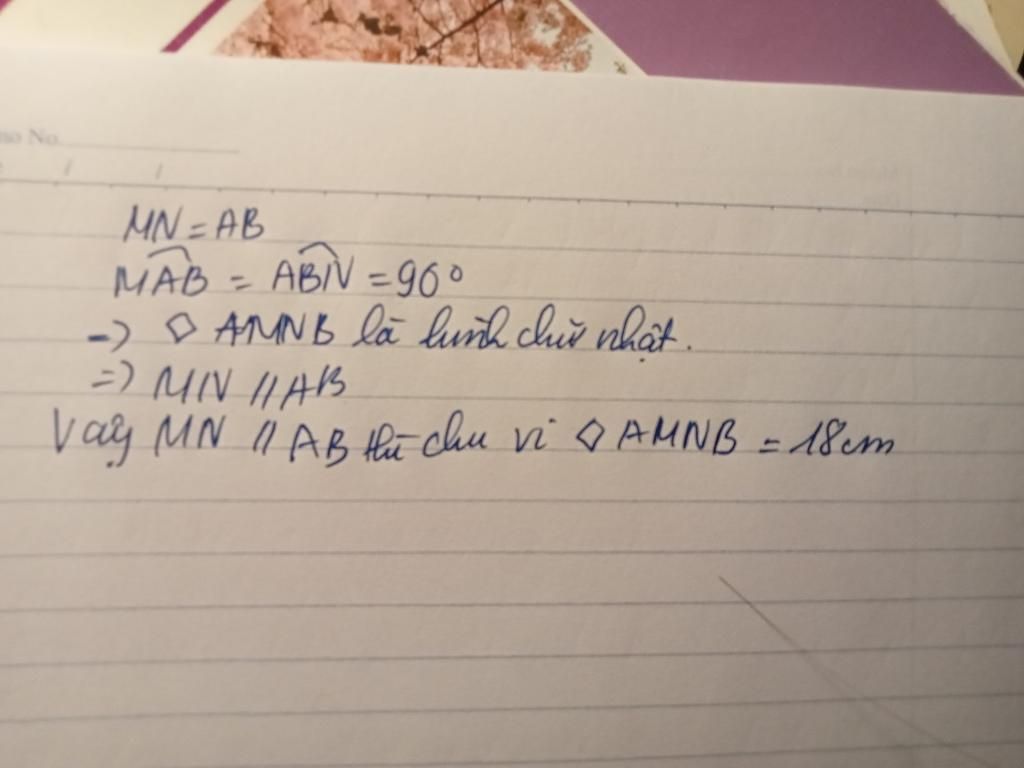 no No
/ /
MN = AB
MAB = ABN = 90°
=> ◇ AMNB là hình chữ nhật.
=> MN // AB
Vậy MN // AB thì chu vi ◇ AMNB = 18cm